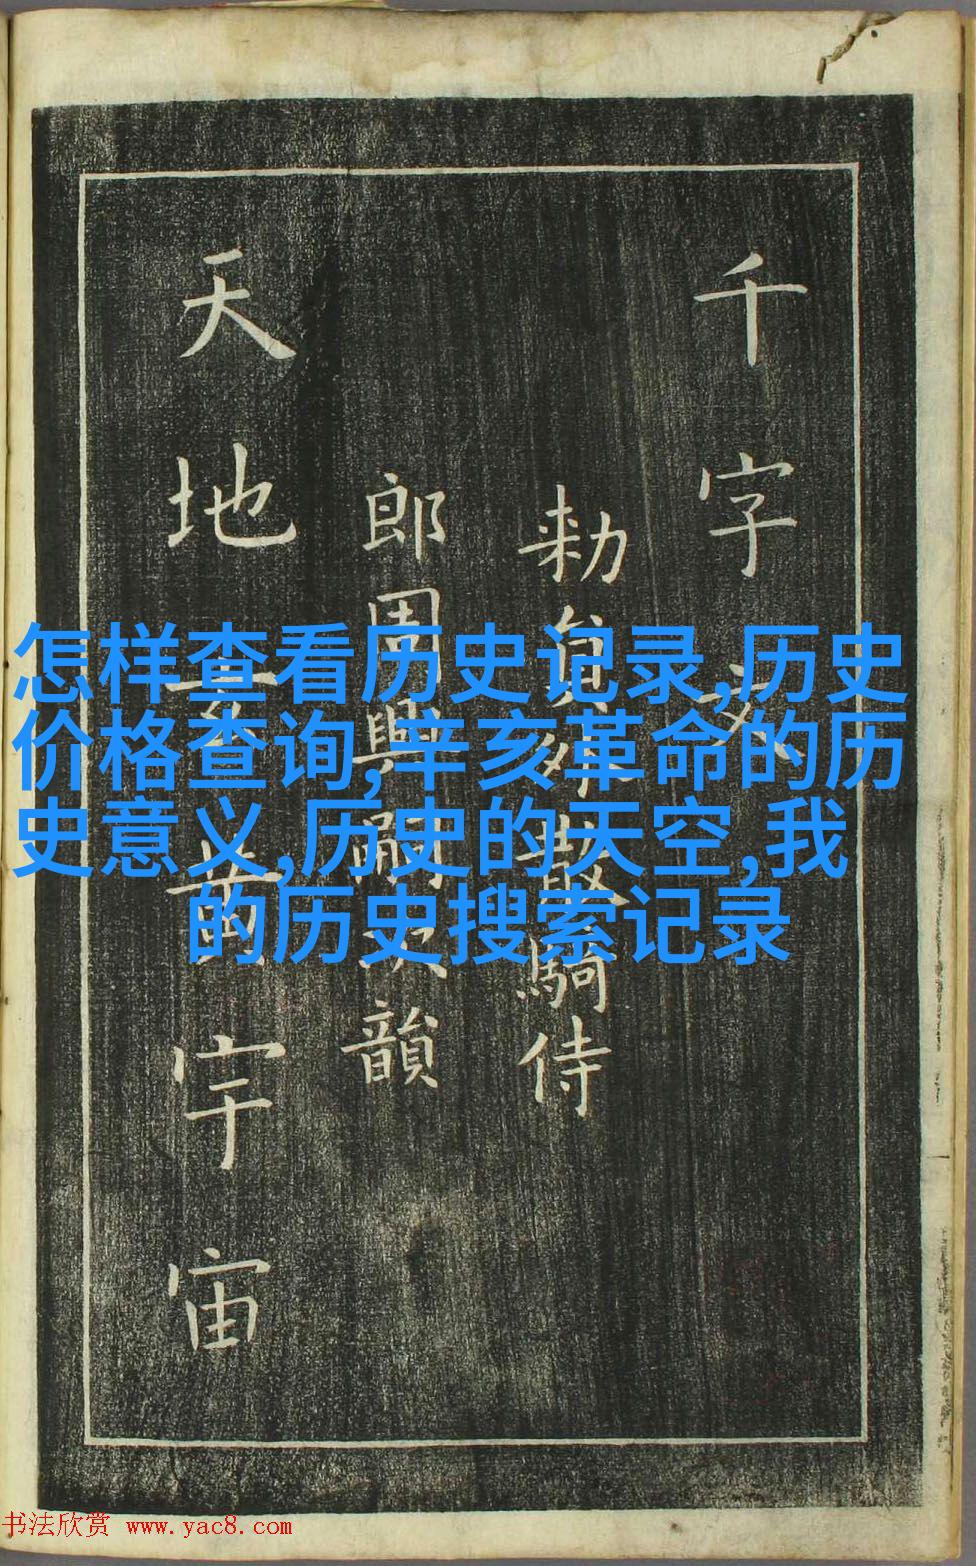 千字文
勑員外散騎侍
郎周興嗣次韻
天地玄黄宇宙
怎样查看历史记录,历史
价格查询,辛亥革命的历
史意义,历史的天空,我
的历史搜索记录
书法欣赏 www.yac8.com